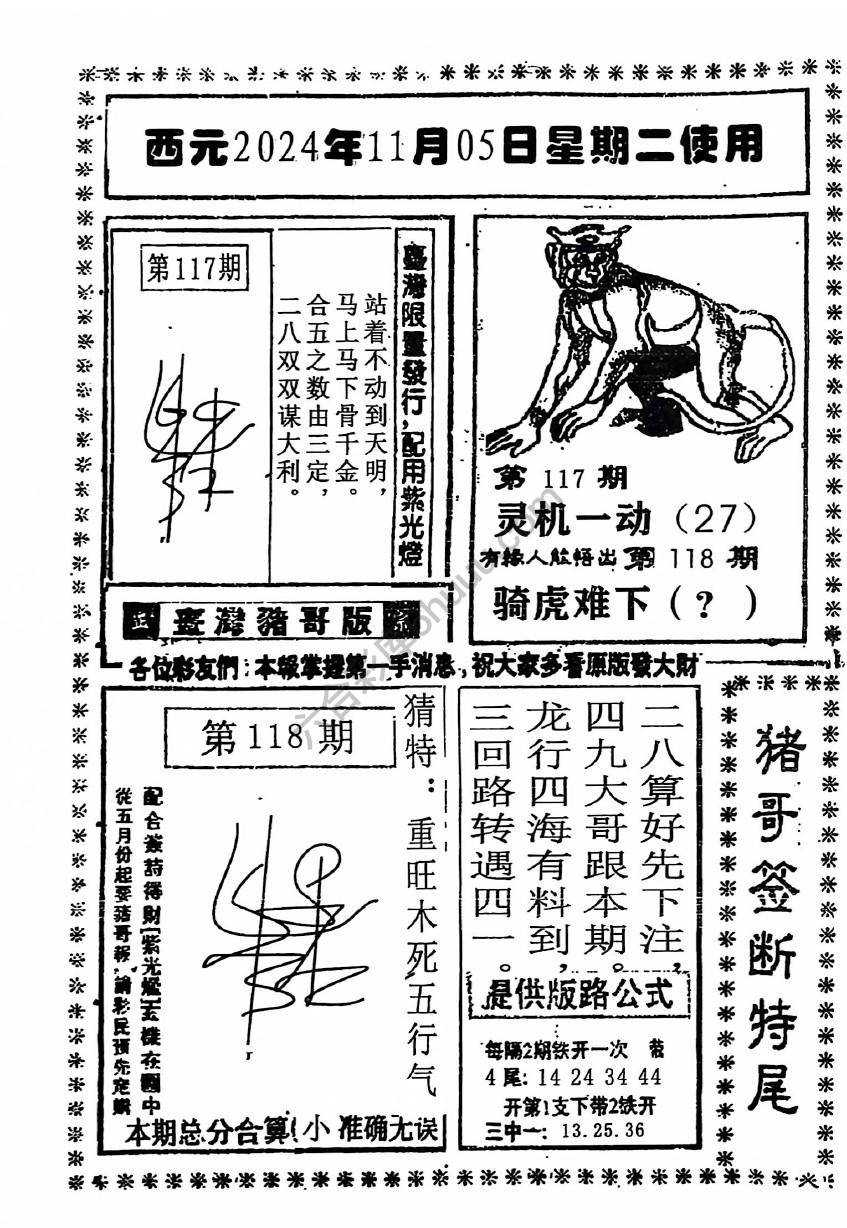 西元2024年11月05日星期二使用
第117期
臺灣限量發行,配用紫光燈
站着不动到天明,
马上马下骨千金。
合五之数由三定,
二八双双谋大利。
臺灣豬哥版
第 117 期
灵机一动(27)
有緣人能悟出 第 118 期
骑虎难下(?)
各位彩友們:本報掌握第一手消息,祝大家多看原版發大財
第118期
猜特:重旺木死五行气
配合簽詩得財[紫光燈]玄機在圖中
從五月份起要豬哥報,請彩民預先定購
本期总分合算(小 准确无误
二八算好先下注,
四九大哥跟本期。
龙行四海有料到,
三回路转遇四一。
提供版路公式
每隔2期铁开一次 带
4尾:14 24 34 44
开第1支下带2铁开
三中一:13.25.36
猪哥签断特尾